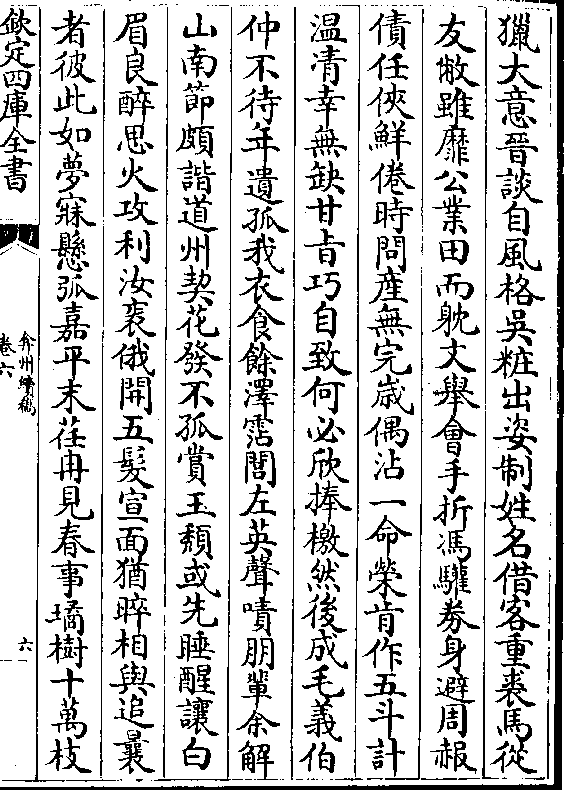 獵大意晉談自風格吳粧出姿制姓名借客重裘馬從
友敝雖靡公業田而躭文舉會手折馮驩券身避周赧
債任俠鮮倦時問産無完歳偶沾一命榮肯作五斗計
温凊幸無缺甘㫖巧自致何必欣捧檄然後成毛義伯
仲不待年遺孤我衣食餘澤霑閭左英聲嘖朋輩余解
山南節頗諧道州契花發不孤賞玉頽或先睡醒讓白
眉良醉思火攻利汝袠俄開五髮宣面猶晬相與追曩
者彼此如夢寐懸弧嘉平末荏冉見春事璚樹十萬枝
欽定四庫全書
弇州續稿
卷六
六